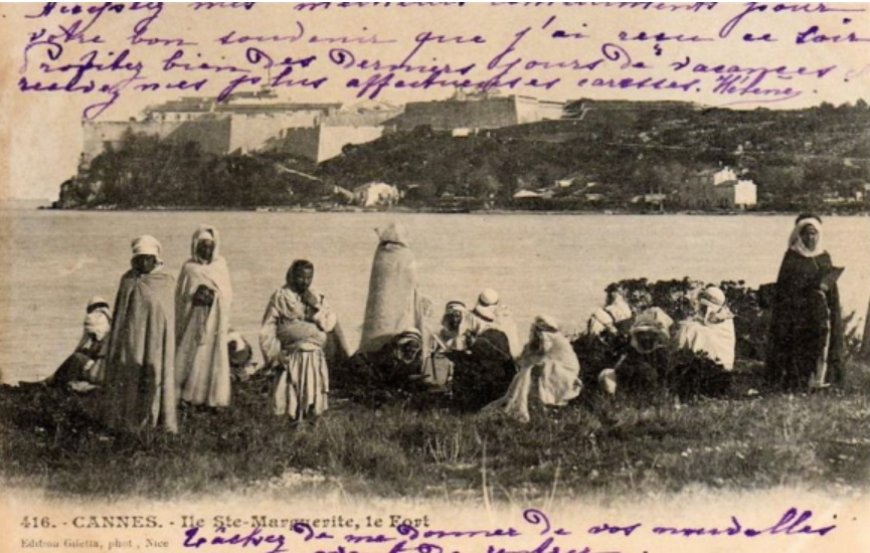 mes meilleurs remerciements pour
votre bon souvenir que j'ai reçu ce soir
Profitez bien des Derniers jours de vacances
recevez mes plus affectueuses caresses. Hélène.
416. - CANNES. - Ile Ste-Marguerite, le Fort
Edition Giletta, phot, Nice
Tâchez de me donner de vos nouvelles
avant de rentrer